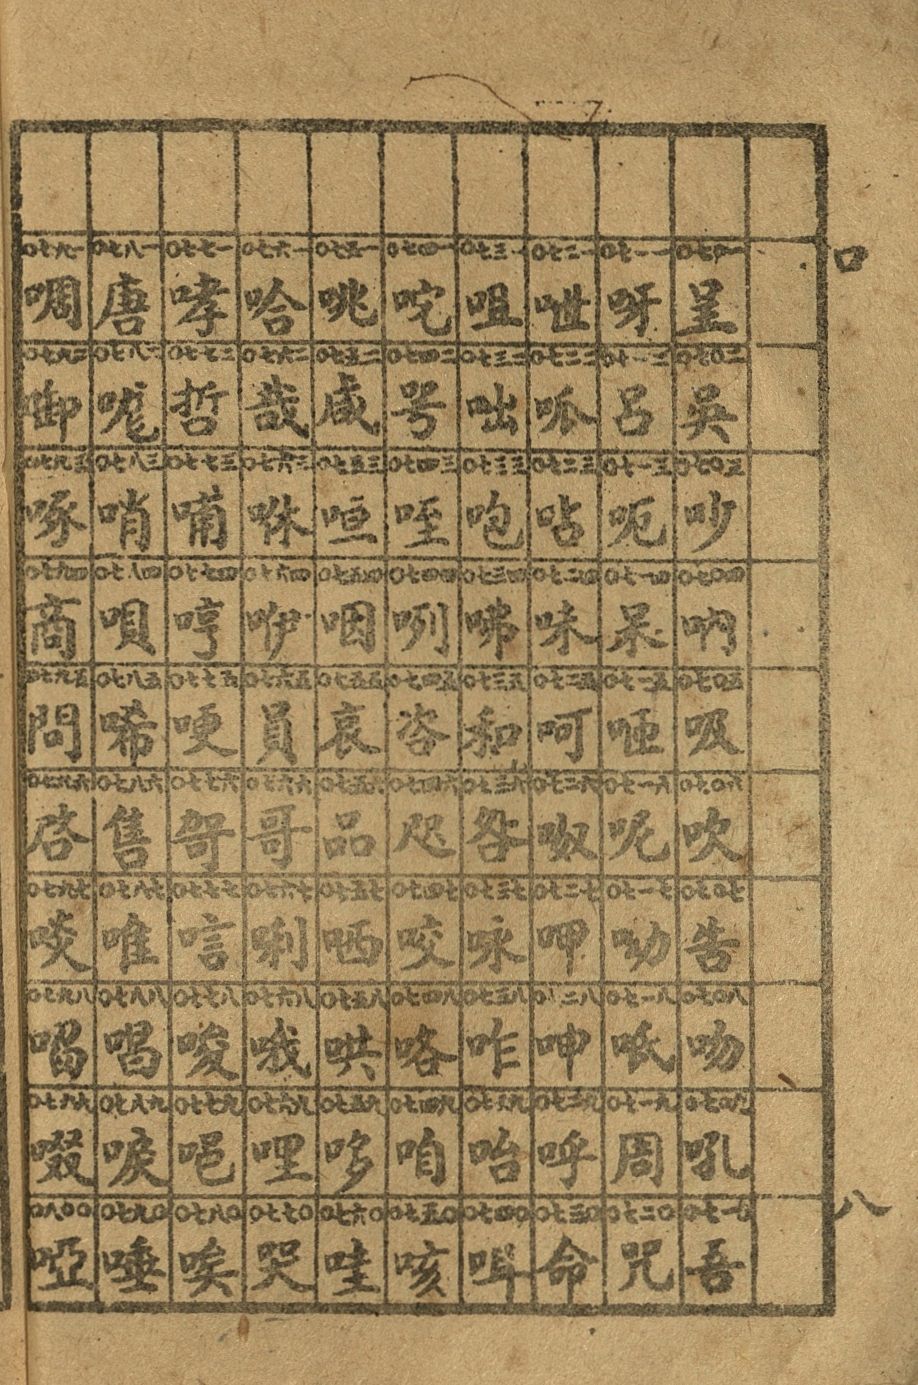 口
八
〇七〇一 呈 〇七〇二 吳 〇七〇三 吵 〇七〇四 吶 〇七〇五 吸 〇七〇六 吹 〇七〇七 告 〇七〇八 吻 〇七〇九 吼 〇七一〇 吾
〇七一一 呀 〇七一二 呂 〇七一三 呃 〇七一四 呆 〇七一五 咂 〇七一六 呢 〇七一七 呦 〇七一八 呧 〇七一九 周 〇七二〇 咒
〇七二一 呭 〇七二二 呱 〇七二三 呫 〇七二四 味 〇七二五 呵 〇七二六 呶 〇七二七 呷 〇七二八 呻 〇七二九 呼 〇七三〇 命
〇七三一 咀 〇七三二 咄 〇七三三 咆 〇七三四 咈 〇七三五 和 〇七三六 咎 〇七三七 咏 〇七三八 咋 〇七三九 咍 〇七四〇 咠
〇七四一 咤 〇七四二 咢 〇七四三 咥 〇七四四 咧 〇七四五 咨 〇七四六 咫 〇七四七 咬 〇七四八 咯 〇七四九 咱 〇七五〇 咳
〇七五一 咷 〇七五二 咸 〇七五三 咺 〇七五四 咽 〇七五五 哀 〇七五六 品 〇七五七 哂 〇七五八 哄 〇七五九 哆 〇七六〇 哇
〇七六一 哈 〇七六二 哉 〇七六三 咻 〇七六四 咿 〇七六五 員 〇七六六 哥 〇七六七 唎 〇七六八 哦 〇七六九 哩 〇七七〇 哭
〇七七一 哮 〇七七二 哲 〇七七三 哺 〇七七四 哼 〇七七五 哽 〇七七六 哿 〇七七七 唁 〇七七八 唆 〇七七九 唈 〇七八〇 唉
〇七八一 唐 〇七八二 哤 〇七八三 哨 〇七八四 唄 〇七八五 唏 〇七八六 售 〇七八七 唯 〇七八八 唱 〇七八九 唳 〇七九〇 唾
〇七九一 啁 〇七九二 啣 〇七九三 啄 〇七九四 商 〇七九五 問 〇七九六 啓 〇七九七 啖 〇七九八 啗 〇七九九 啜 〇八〇〇 啞